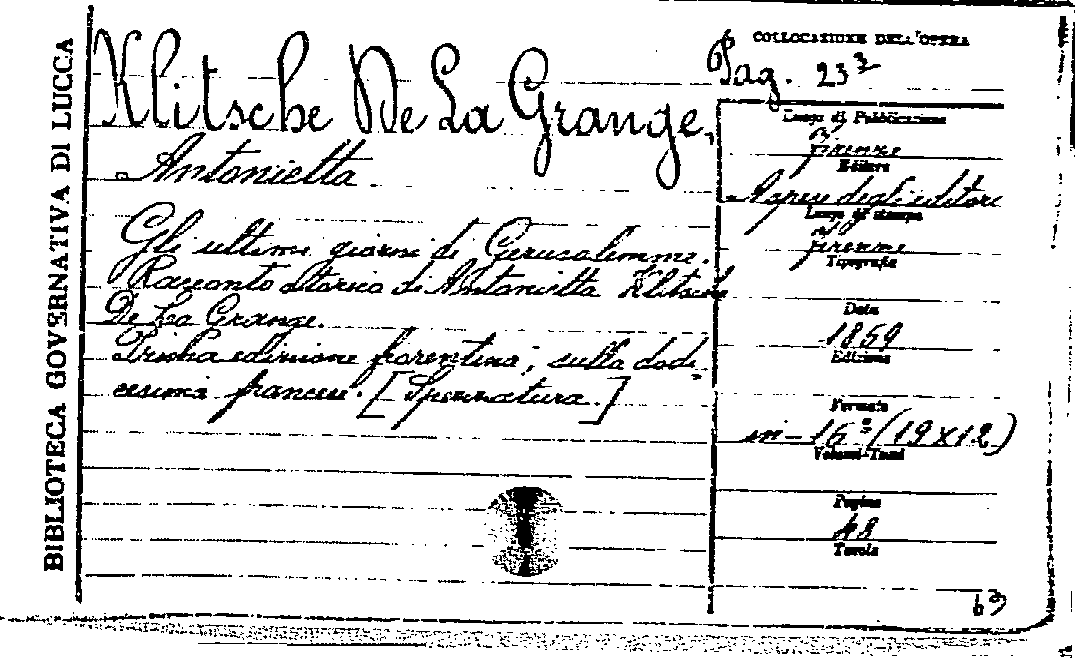 BIBLIOTECA GOVERNATIVA DI LUCCA
Klitsche De La Grange,
Antonietta
Gli ultimi giorni di Gerusalemme.
Racconto storico di Antonietta Klitsche
De La Grange.
edizione fiorentina; sulla dodi-
cesima francese. [Spezzatura.]
COLLOCAZIONE DELL'OPERA
Pag. 23
Luogo di Pubblicazione
Firenze
Editore
A spese degli editori
Luogo di stampa
Firenze
Tipografia
Data
1859
Edizione
Formato
in-16° (19x12)
Volumi-Tomi
Pagine
48
Tavole
63